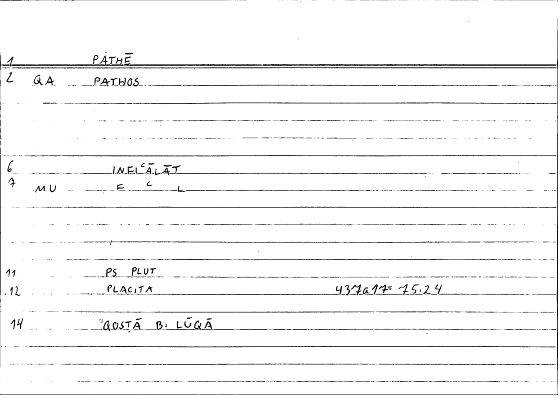 1 PÁTHĒ
2 QA PATHOS
6 INFIʿĀLĀT
7 MU F ʿ L
11 PS PLUT
12 PLACITA 437a17= 75.24
14 QOSṬĀ B. LŪQĀ